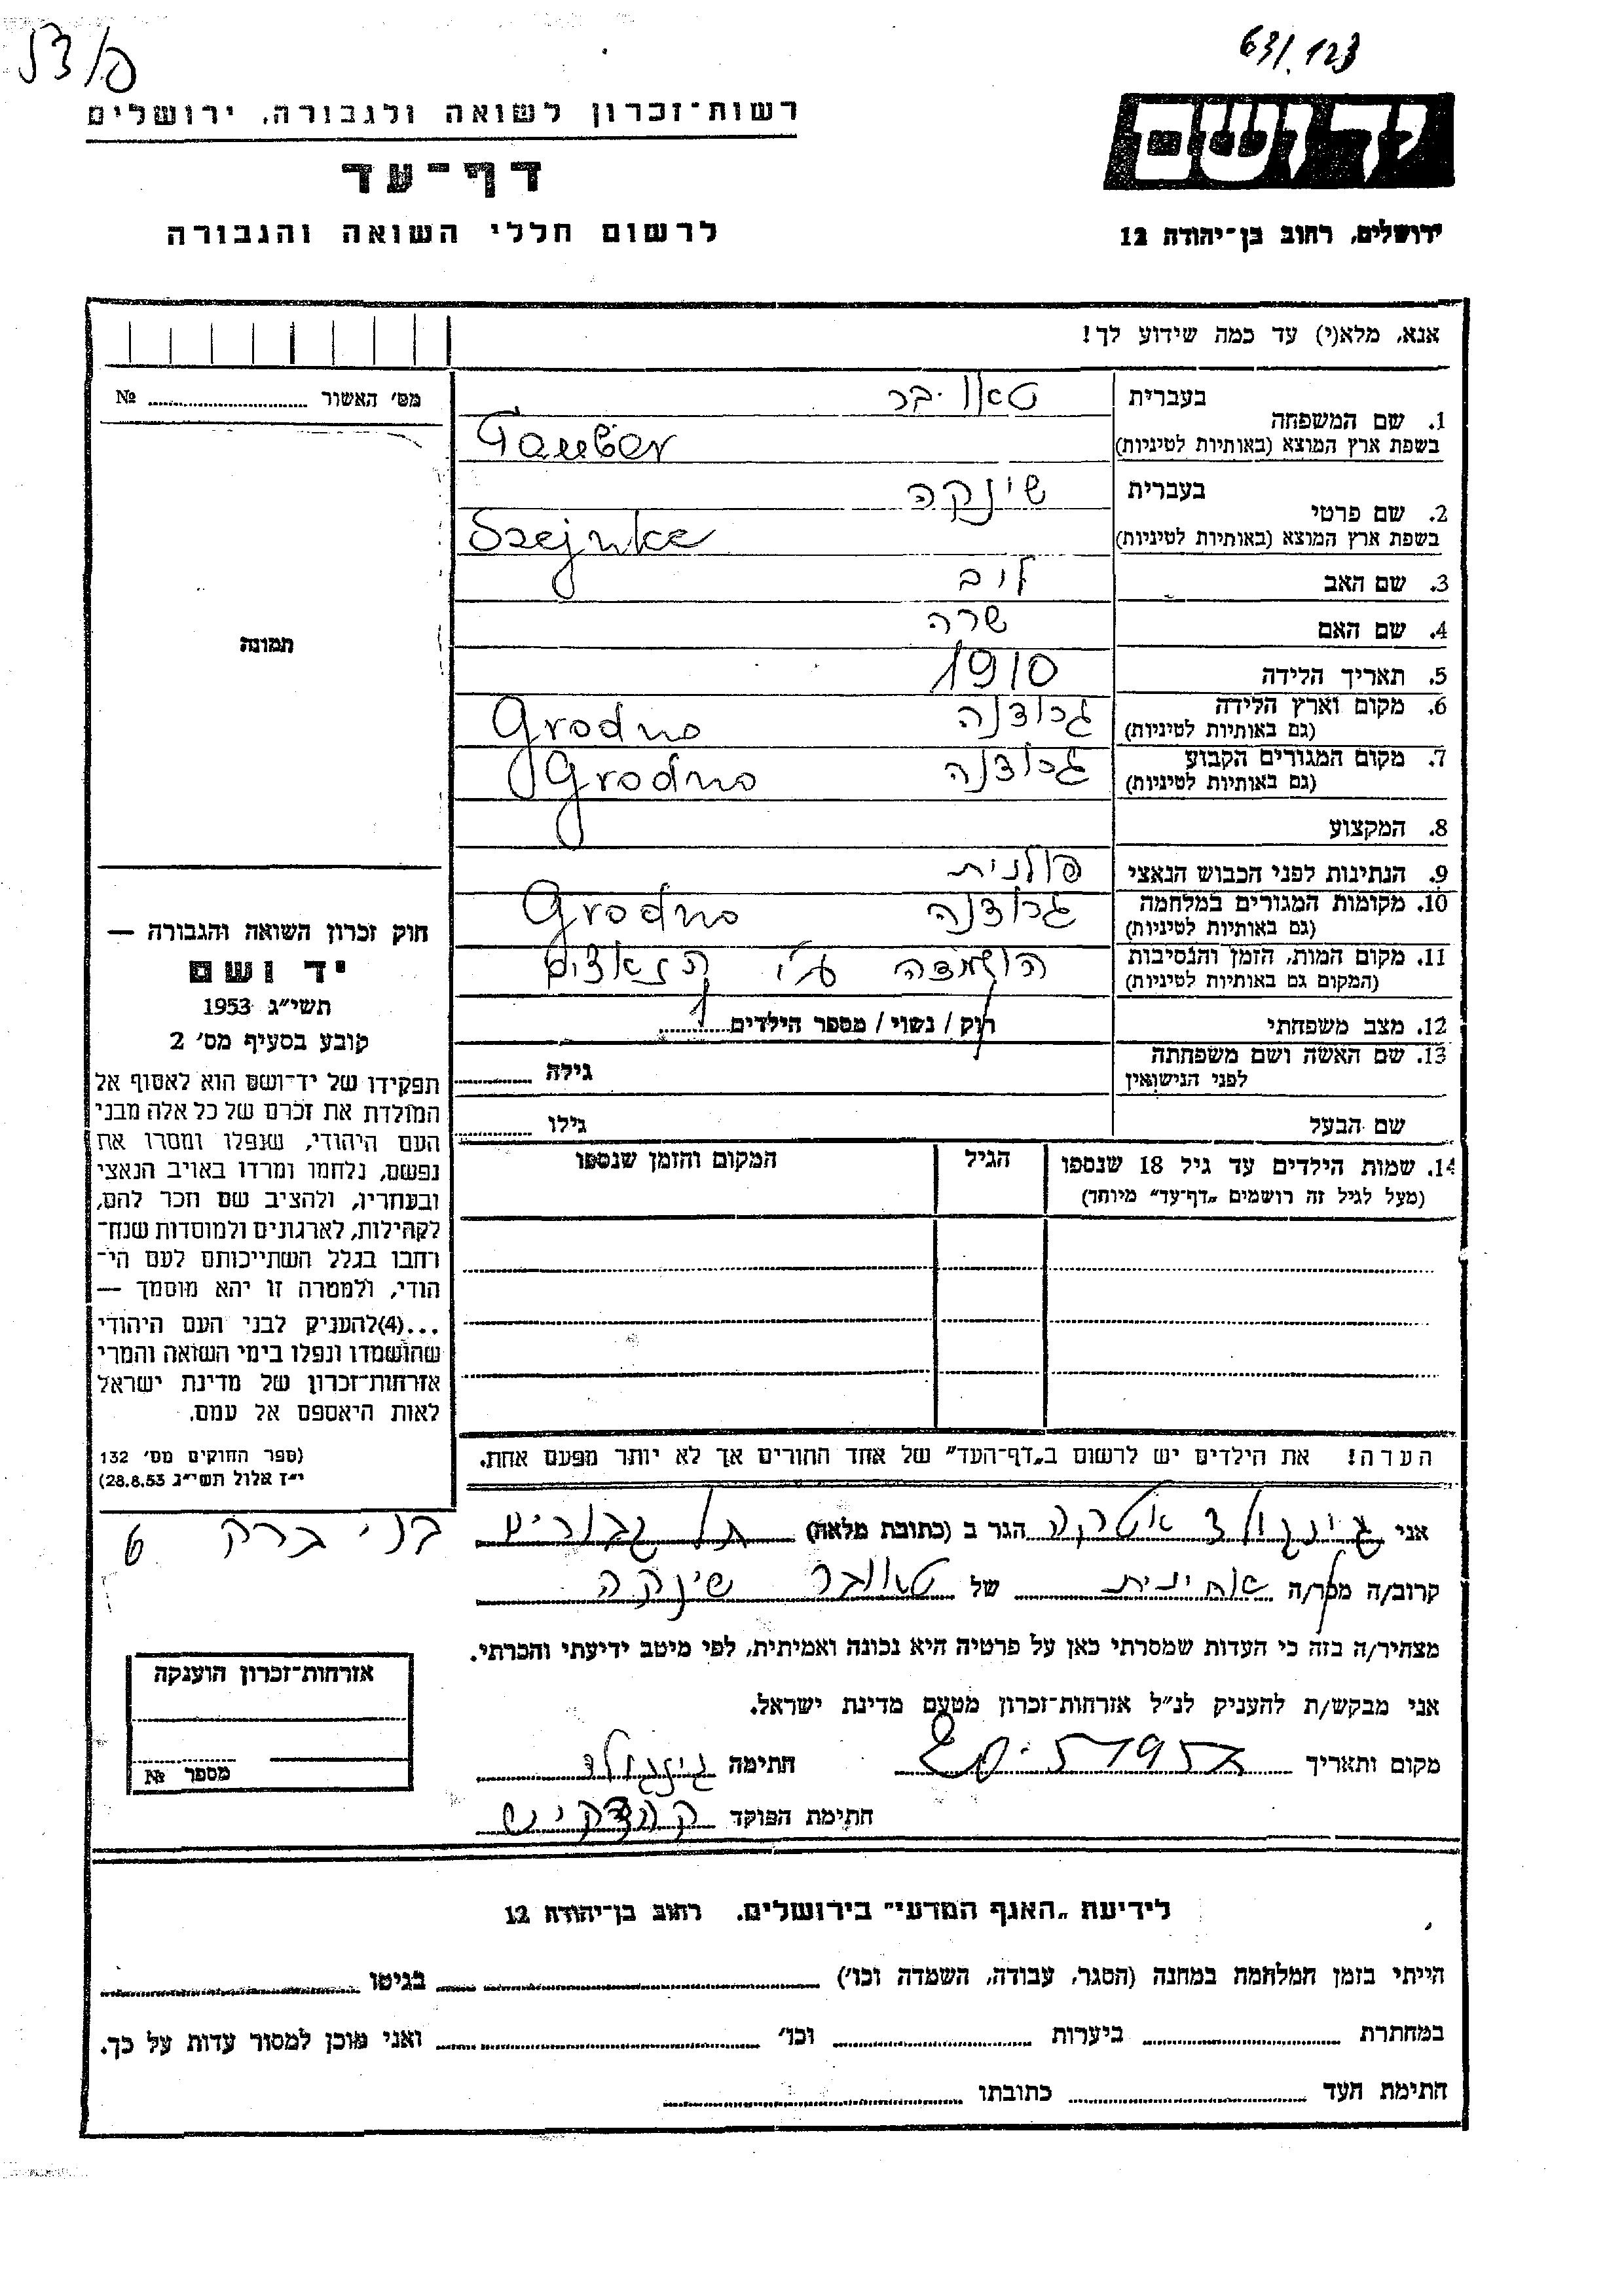 63/123
רשות־זכרון לשואה ולגבורה, ירושלים
דף־עד
לרשום חללי השואה והגבורה
יד ושם
ירושלים, רחוב בן־יהודה 12
אנא, מלא(י) עד כמה שידוע לך!
מס׳ האשור № ........
1. שם המשפחה
בעברית טאובר
בשפת ארץ המוצא (באותיות לטיניות) Tauber
2. שם פרטי
בעברית שינקה
בשפת ארץ המוצא (באותיות לטיניות) Szejnke
3. שם האב לייב
4. שם האם שרה
5. תאריך הלידה 1910
6. מקום וארץ הלידה (גם באותיות לטיניות) גרודנה Grodno
7. מקום המגורים הקבוע (גם באותיות לטיניות) גרודנה Grodno
8. המקצוע
9. הנתינות לפני הכבוש הנאצי פולנית
10. מקומות המגורים במלחמה (גם באותיות לטיניות) גרודנה Grodno
11. מקום המות, הזמן והנסיבות (המקום גם באותיות לטיניות) הושמדה ע״י הנאצים
12. מצב משפחתי רוק / נשוי / מספר הילדים ........
13. שם האשה ושם משפחתה לפני הנישואין גילה ........
שם הבעל גילו ........
14. שמות הילדים עד גיל 18 שנספו (מעל לגיל זה רושמים „דף־עד״ מיוחד)
הגיל
המקום והזמן שנספו
תמונה
חוק זכרון השואה והגבורה —
יד ושם
תשי״ג 1953
קובע בסעיף מס׳ 2
תפקידו של יד־ושם הוא לאסוף אל
המולדת את זכרם של כל אלה מבני
העם היהודי, שנפלו ומסרו את
נפשם, נלחמו ומרדו באויב הנאצי
ובעוזריו, ולהציב שם וזכר להם,
לקהילות, לארגונים ולמוסדות שנח־
רבו בגלל השתייכותם לעם הי־
הודי, ולמטרה זו יהא מוסמך —
...(4)להעניק לבני העם היהודי
שהושמדו ונפלו בימי השואה והמרי
אזרחות־זכרון של מדינת ישראל
לאות היאספם אל עמם.
(ספר החוקים מס׳ 132
י״ז אלול תשי״ג 28.8.53)
הערה! את הילדים יש לרשום ב„דף־העד״ של אחד ההורים אך לא יותר מפעם אחת.
אני גינגולד הגר ב (כתובת מלאה) תל גבורים בני ברק 6
קרוב/ה מכר/ה אחינית של טאובר שינקה
מצהיר/ה בזה כי העדות שמסרתי כאן על פרטיה היא נכונה ואמיתית, לפי מיטב ידיעתי והכרתי.
אני מבקש/ת להעניק לנ״ל אזרחות־זכרון מטעם מדינת ישראל.
מקום ותאריך ........ חתימה גינגולד
חתימת הפוקד
אזרחות־זכרון הוענקה
מספר №
לידיעת „האגף המדעי״ בירושלים. רחוב בן־יהודה 12
הייתי בזמן המלחמה במחנה (הסגר, עבודה, השמדה וכו׳) ........ בגיטו ........
במחתרת ........ ביערות ........ וכו׳ ........ ואני מוכן למסור עדות על כך.
חתימת העד ........ כתובתו ........